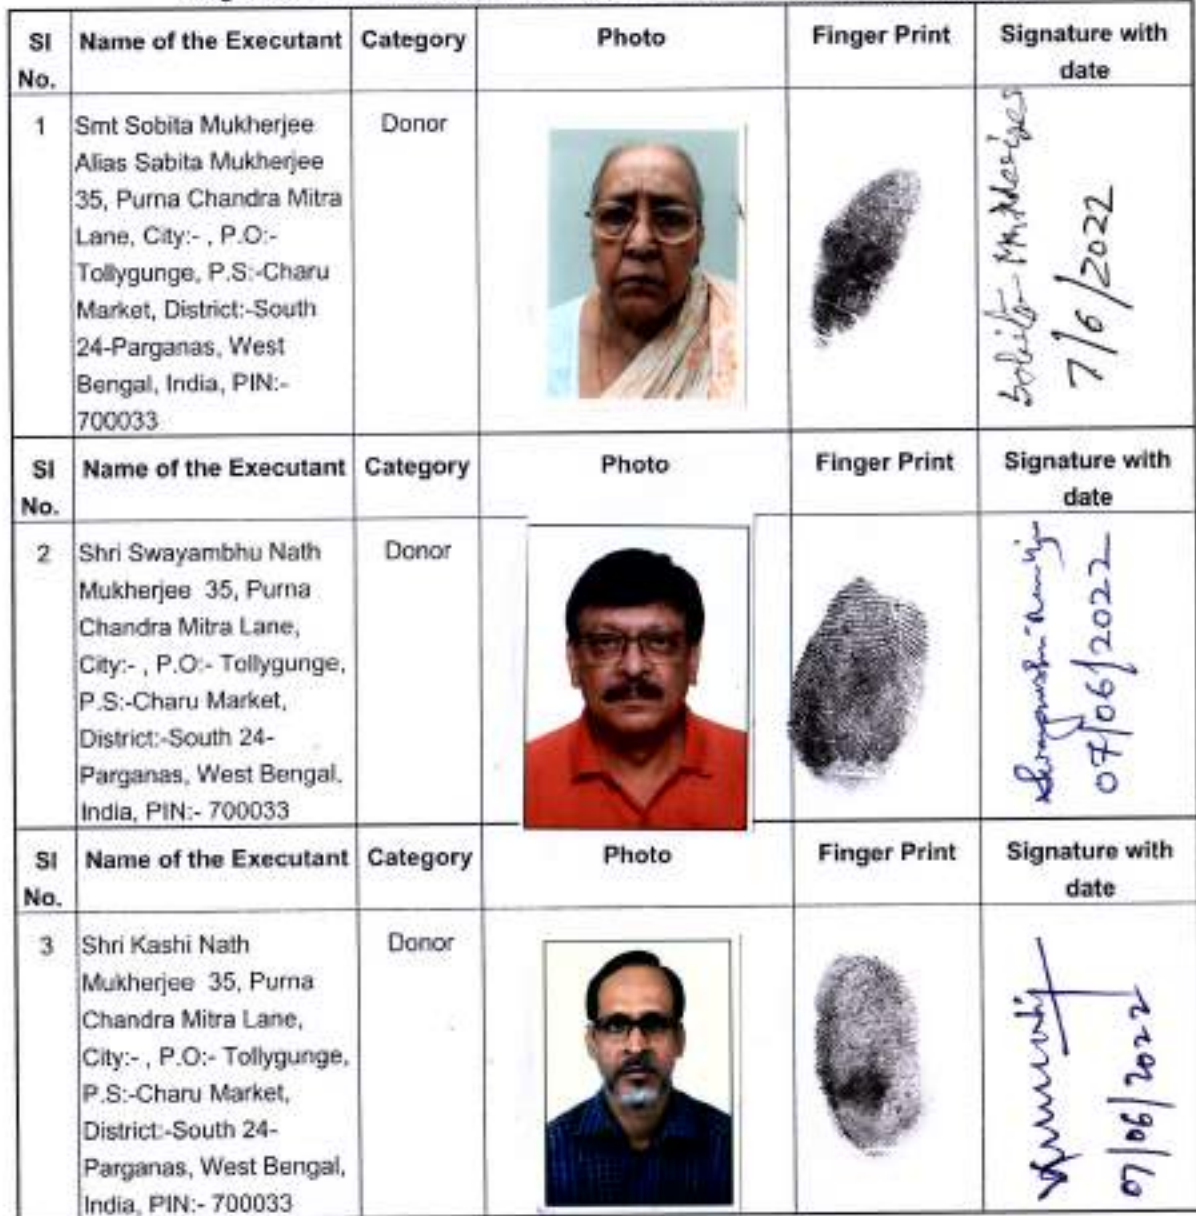 SI No.
Name of the Executant
Category
Photo
Finger Print
Signature with date
1
Smt Sobita Mukherjee
Alias Sabita Mukherjee
35, Purna Chandra Mitra
Lane, City:- , P.O:-
Tollygunge, P.S:-Charu
Market, District:-South
24-Parganas, West
Bengal, India, PIN:-
700033
Donor
7/6/2022
SI No.
Name of the Executant
Category
Photo
Finger Print
Signature with date
2
Shri Swayambhu Nath
Mukherjee 35, Purna
Chandra Mitra Lane,
City:- , P.O:- Tollygunge,
P.S:-Charu Market,
District:-South 24-
Parganas, West Bengal,
India, PIN:- 700033
Donor
07/06/2022
SI No.
Name of the Executant
Category
Photo
Finger Print
Signature with date
3
Shri Kashi Nath
Mukherjee 35, Purna
Chandra Mitra Lane,
City:- , P.O:- Tollygunge,
P.S:-Charu Market,
District:-South 24-
Parganas, West Bengal,
India, PIN:- 700033
Donor
07/06/2022